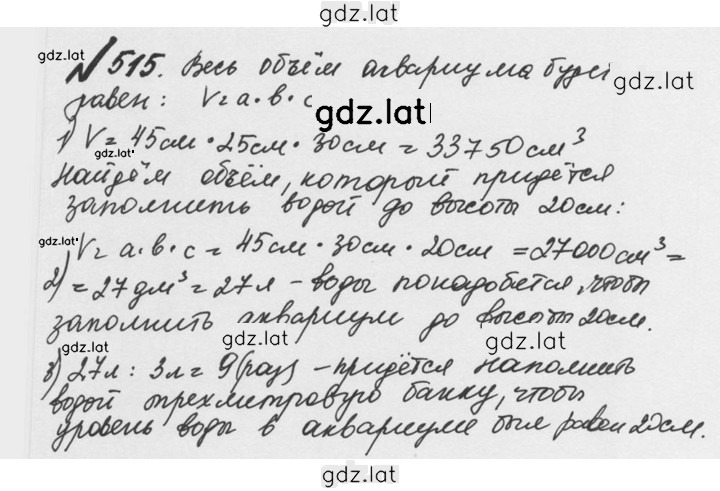 gdz.lat
gdz.lat
№ 515. Весь объём аквариума будет
равен: V = a·в·с
gdz.lat
1) V = 45см · 25см · 30см = 33750см³
gdz.lat
Найдём объём, который придётся
заполнить водой до высоты 20см:
gdz.lat
V = a·в·с = 45см · 30см · 20см = 27000см³ =
2) = 27дм³ = 27л – воды понадобется, чтобы
заполнить аквариум до высоты 20см.
gdz.lat
gdz.lat
3) 27л : 3л = 9(раз) – придётся наполнить
водой трехлитровую банку, чтобы
уровень воды в аквариуме был равен 20см.
gdz.lat